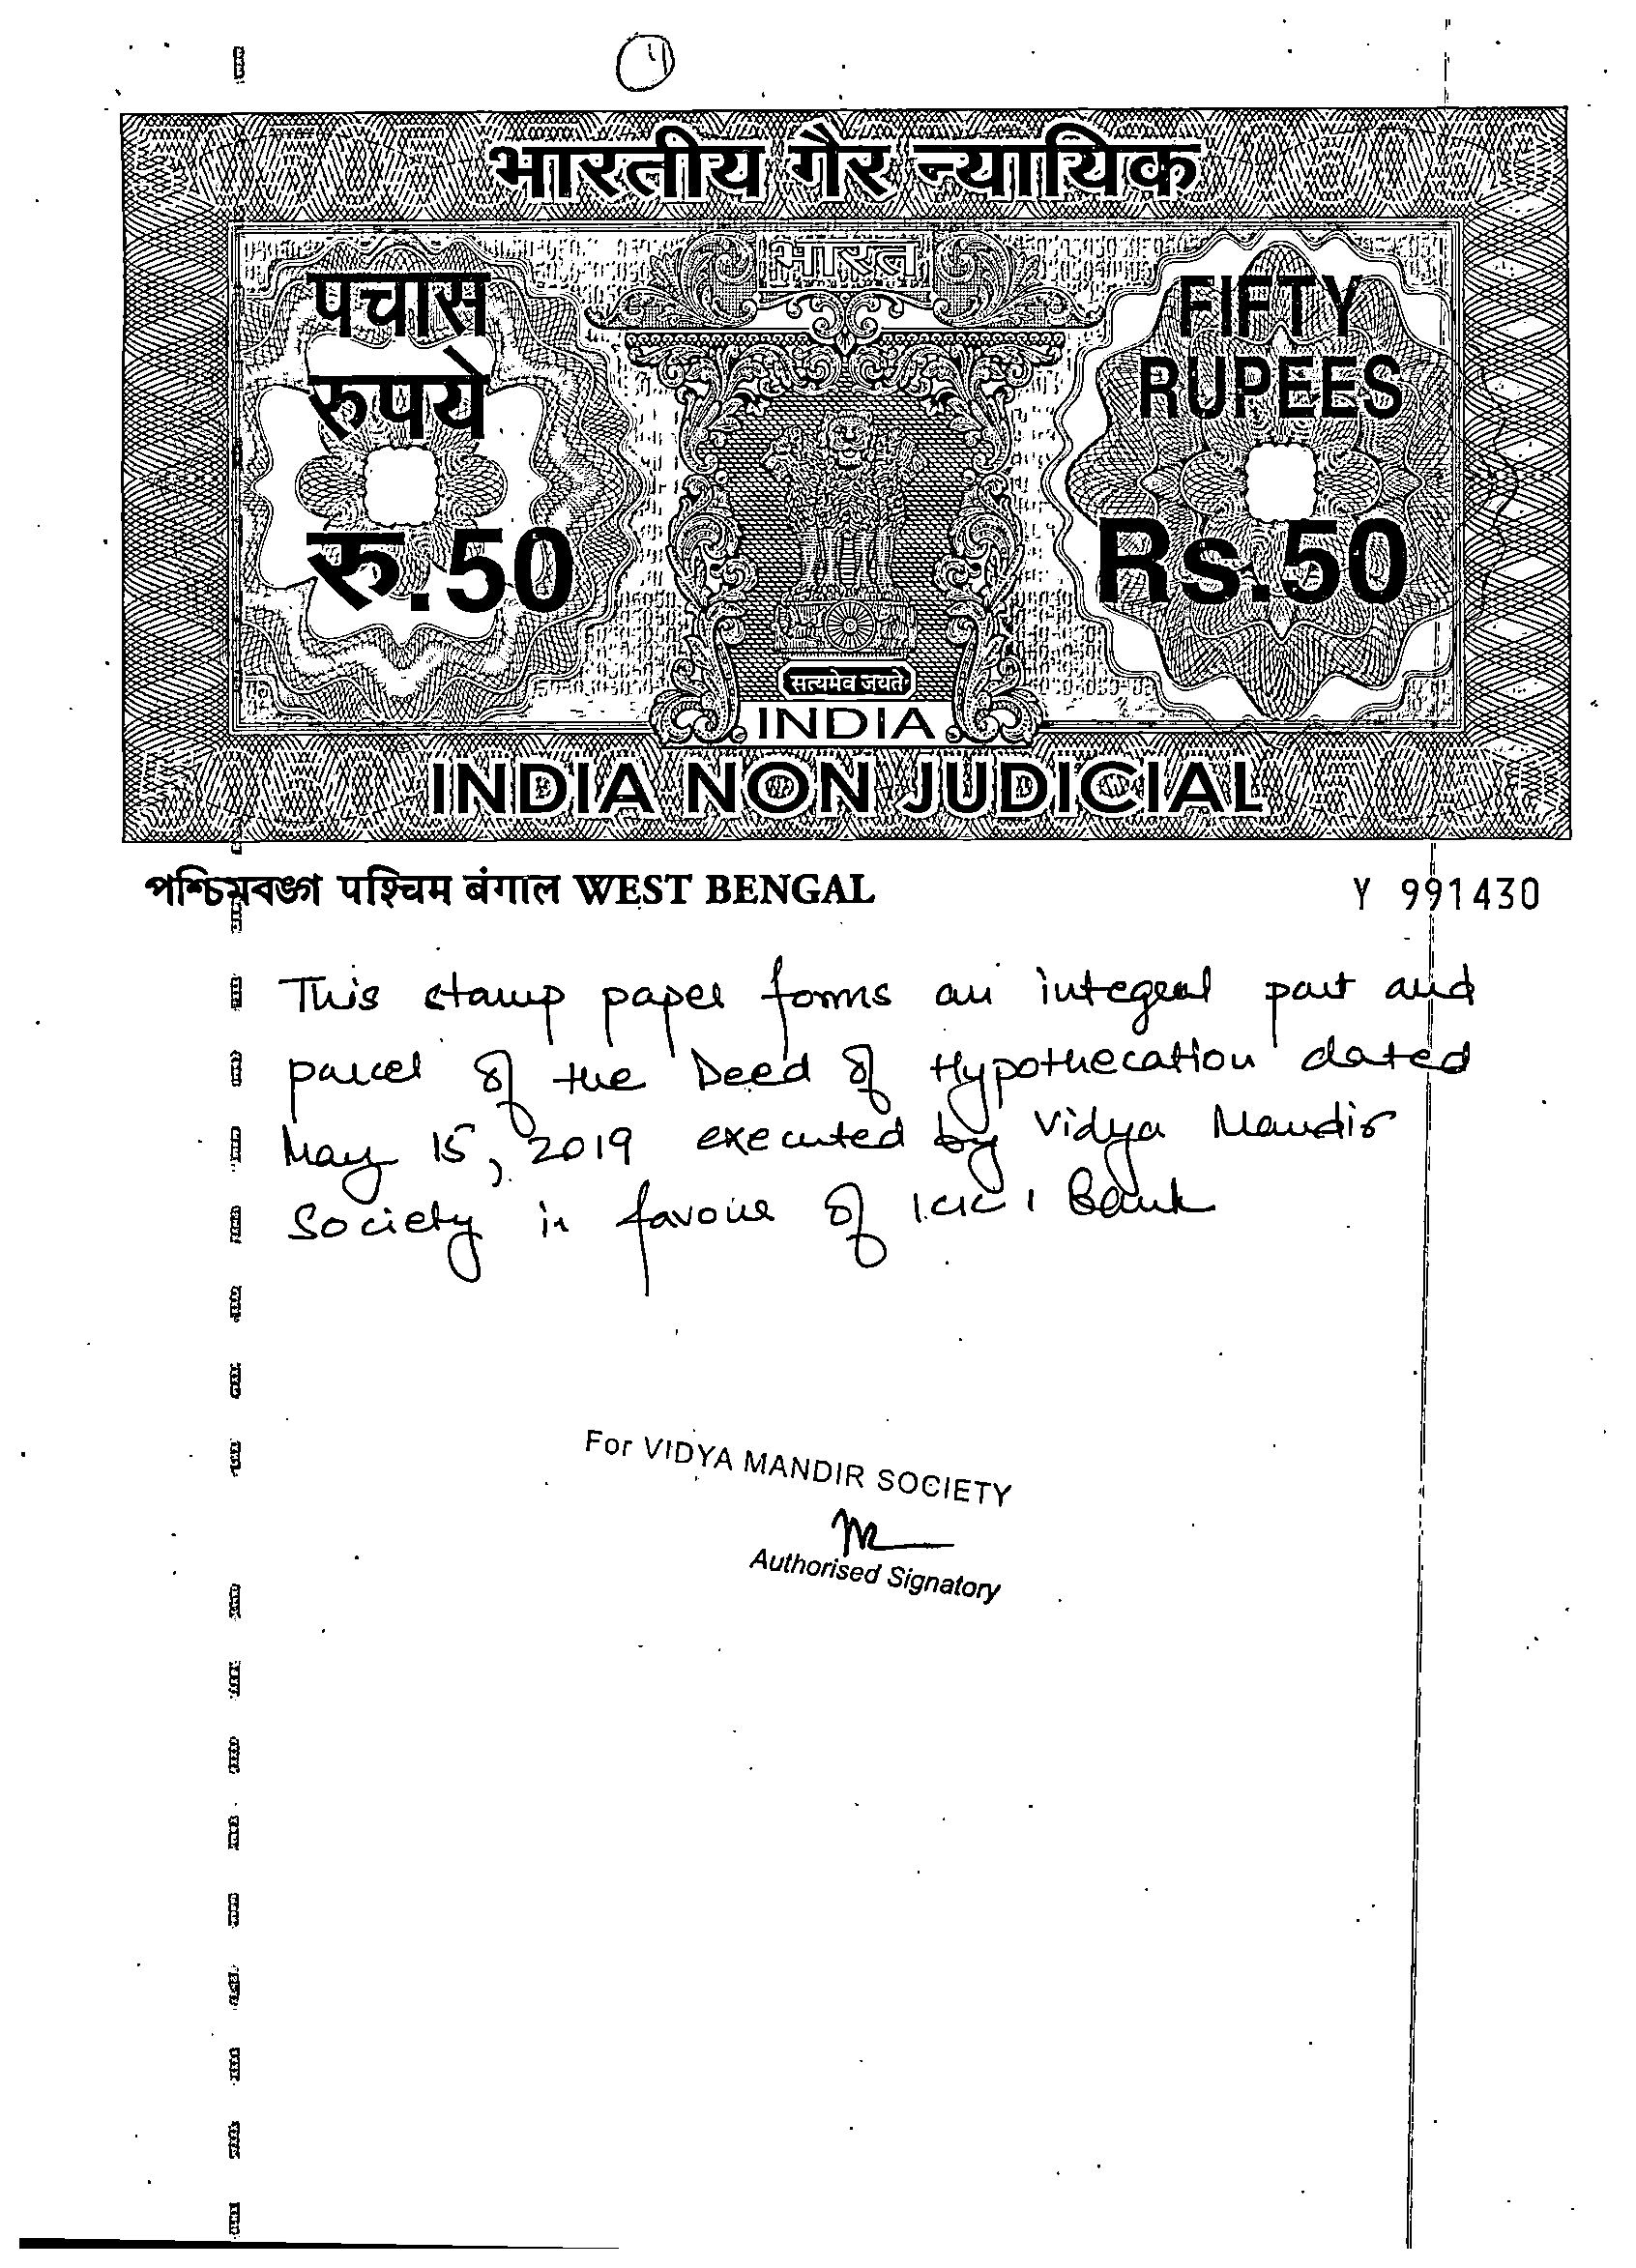 4
भारतीय गैर न्यायिक
भारत
पचास
रुपये
रु.50
FIFTY
RUPEES
Rs.50
सत्यमेव जयते
INDIA
INDIA NON JUDICIAL
পশ্চিমবঙ্গ पश्चिम बंगाल WEST BENGAL
Y 991430
This stamp paper forms an integral part and
parcel of the Deed of Hypothecation dated
May 15, 2019 executed by Vidya Mandir
Society in favour of ICICI Bank
For VIDYA MANDIR SOCIETY
Authorised Signatory